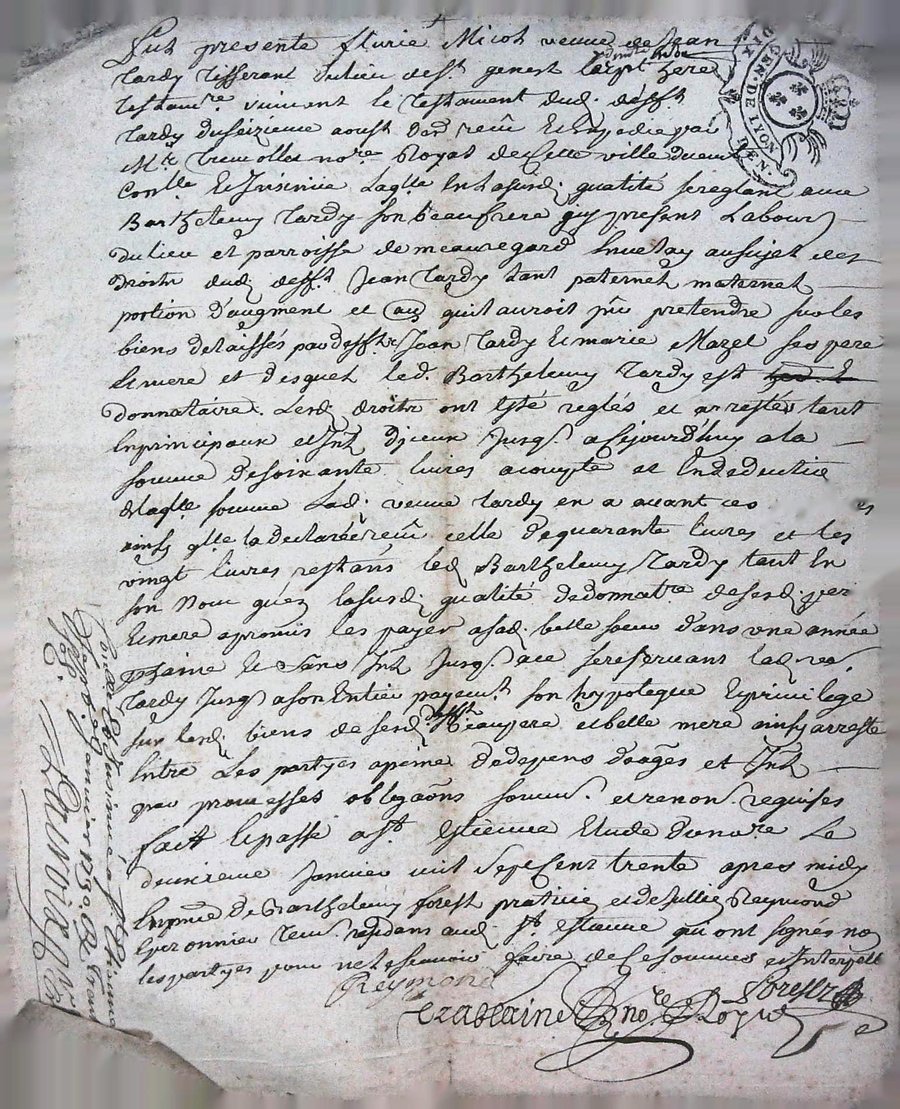 Fut presente fleurie Micol veuve de Jean
Tardy tisserant du lieu de St. genest here
testamre. suivant le testament dud. defft
Tardy du seizieme aoust receu Et expedie par
Me. Tremollet nore. Royal de cette ville
Conlle Et Insinue Laqlle En la susd. qualité se reglant avec
Barthelemy Tardy son beaufrere icy present Labour
du lieu et parroisse de meauregard Envelay au sujet des
droits dud defft. Jean Tardy tant paternel maternel
portion d'augment et qu'il auroit pû pretendre sur les
biens delaissés par defft Jean Tardy Et marie Mazel ses pere
Et mere et desquels led. Barthelemy Tardy est
donnataire. Lesd droits ont Esté reglés et arrestés tant
En principaux et Int d'iceux Jusq. a cejourd'huy a la
somme de soixante livres a compte et En deduction
de laqlle somme Lad. veuve Tardy en a avant ces
ainsy qlle la declaré receu celle de quarante livres et les
vingt livres restans led Barthelemy Tardy tant En
son Nom qu'en la susd. qualité de donnatre desesd. pere
Et mere a promis les payer a sad. belle soeur dans une année
prochaine Et sans Int Jusq. a ce se reservant lad. ve.
Tardy Jusq a son Entier payemt. son hypoteque Et privilege
sur lesd. biens de sesd. defft beaupere et belle mere ainsy arresté
Entre Les partyes a peine de depens domages et Int
par promesses obligaons soumis. et renon. requises
fait Et passé a St. Estienne Etude du nore Le
deuxieme Janvier mil sept cent trente apres midy
En pnce de Barthelemy forest praticien et de Jullien Reymond
Eperonnier audt. St. estienne qui ont signes non
les partyes pour ne le scavoir faire de ce sommés et Interpellés
Reymond
Forest
nore Royal
GEN. DE LYON
DIX
Con. Et Insinué a St. Etienne
Janvier 1730